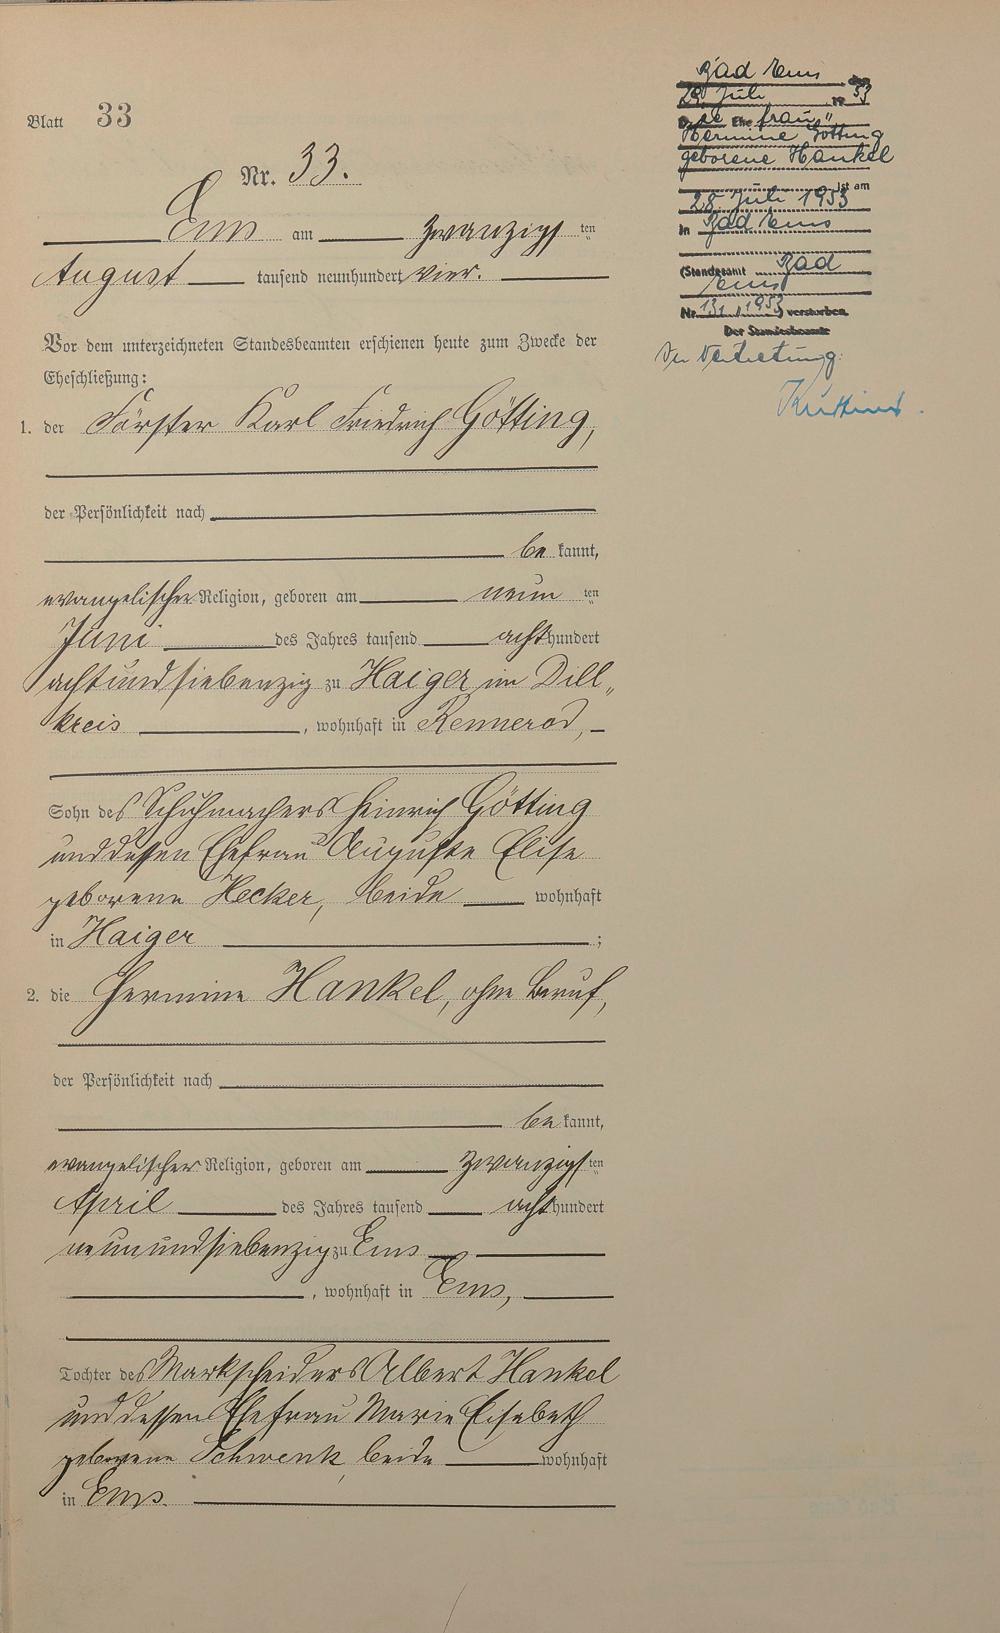 Blatt 33
Nr. 33.
Ems am zwanzigsten
August tausend neunhundert vier.
Vor dem unterzeichneten Standesbeamten erschienen heute zum Zwecke der
Eheschließung:
1. der Förster Karl Friedrich Götting,
der Persönlichkeit nach
bekannt,
evangelischer Religion, geboren am neunten
Juni des Jahres tausend achthundert
achtundsiebenzig zu Haiger im Dill„
kreis, wohnhaft in Rennerod,
Sohn des Schuhmachers Heinrich Götting
und dessen Ehefrau Auguste Elise
geborene Hecker, beide wohnhaft
in Haiger ;
2. die Hermine Hankel, ohne Beruf,
der Persönlichkeit nach
bekannt,
evangelischer Religion, geboren am zwanzigsten
April des Jahres tausend achthundert
neunundsiebenzig zu Ems
, wohnhaft in Ems,
Tochter des Markscheiders Albert Hankel
und dessen Ehefrau Marie Elisabeth
geborene Schwenk, beide wohnhaft
in Ems.
Bad Ems
29. Juli 53
Die Ehefrau
Hermine Götting
geborene Hankel
ist am
28. Juli 1953
in Bad Ems
(Standesamt Bad
Ems
Nr. 131/1953) verstorben.
Der Standesbeamte
In Vertretung: